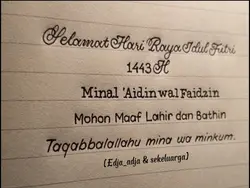 Selamat Hari Raya Idul Fitri
1443 H
Minal 'Aidin wal Faidzin
Mohon Maaf Lahir dan Bathin
Taqabbalallahu mina wa minkum.
(Edja_adja & sekeluarga)